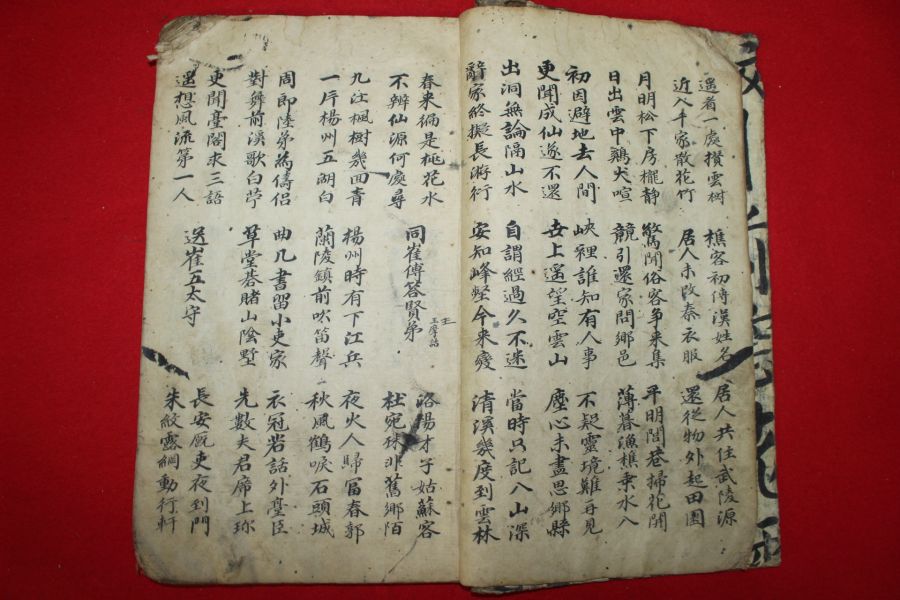 遥看一處攅雲樹
近入千家散花竹
樵客初傳漢姓名
居人未改秦衣服
居人共住武陵源
還從物外起田園
月明松下房櫳静
日出雲中鷄犬喧
驚聞俗客爭來集
競引還家問鄉邑
平明閭巷掃花開
薄暮漁樵乗水入
初因避地去人間
更聞成仙遂不還
峽裡誰知有人事
世上遥望空雲山
不疑靈境難再見
塵心未盡思鄉縣
出洞無論隔山水
辭家終擬長游衍
自謂經過久不迷
安知峰壑今来變
當時只記入山深
清溪幾度到雲林
春来徧是桃花水
不辨仙源何處尋
同崔傅答賢弟
王摩詰
洛陽才子姑蘇客
杜宛殊非舊鄉陌
九江楓樹幾回青
一片楊州五湖白
楊州時有下江兵
蘭陵鎮前吹笛聲
夜火人歸富春郭
秋風鶴唳石頭城
周郎陸弟為儔侶
對舞前溪歌白苧
曲几書留小吏家
草堂碁賭山陰墅
衣冠若話外臺臣
先數夫君席上珎
更聞臺閣求三語
遥想風流第一人
送崔五太守
長安厩吏夜到門
朱紋露網動行軒